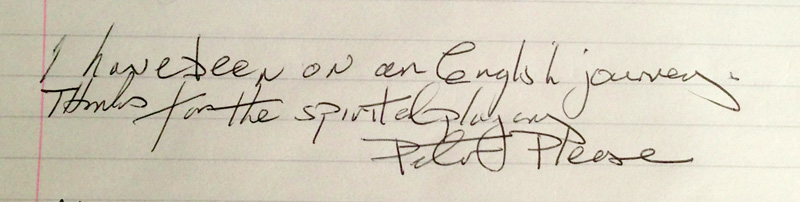 I have been on an English journey.
Thanks for the spirited playing
Pilot Please